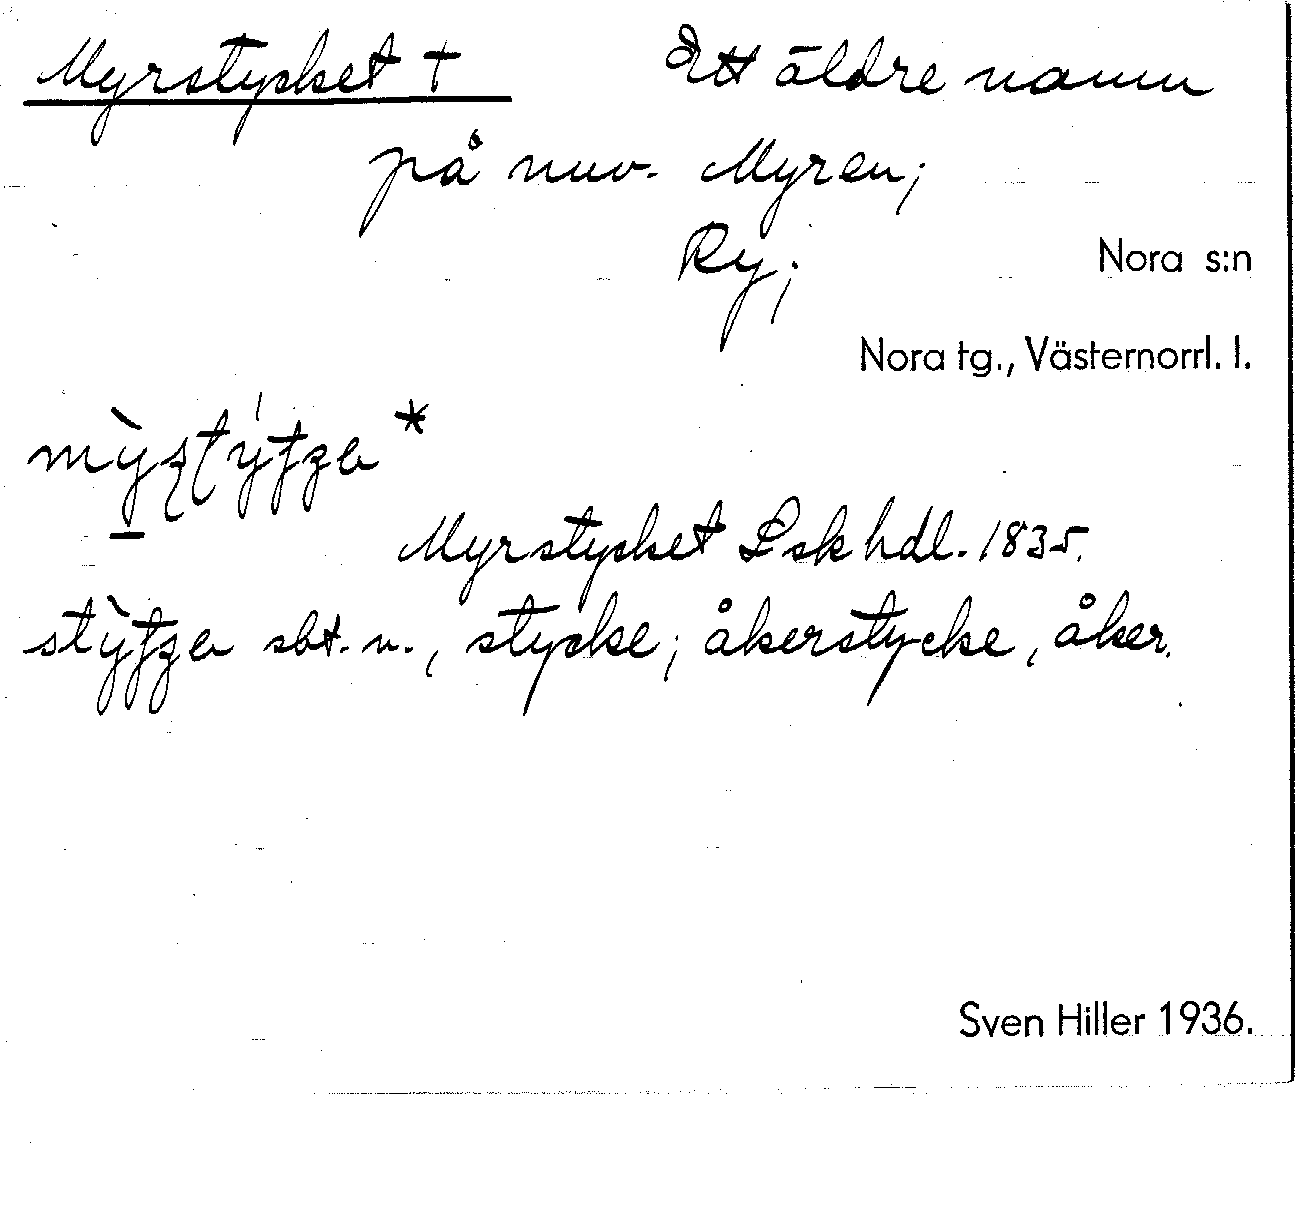 Myrstycket + Ett äldre namn
på nuv. Myren;
Ry;
Nora s:n
Nora tg., Västernorrl. l.
Myrstycket Lskhdl. 1835.
sbt. n., stycke; åkerstycke, åker.
Sven Hiller 1936.